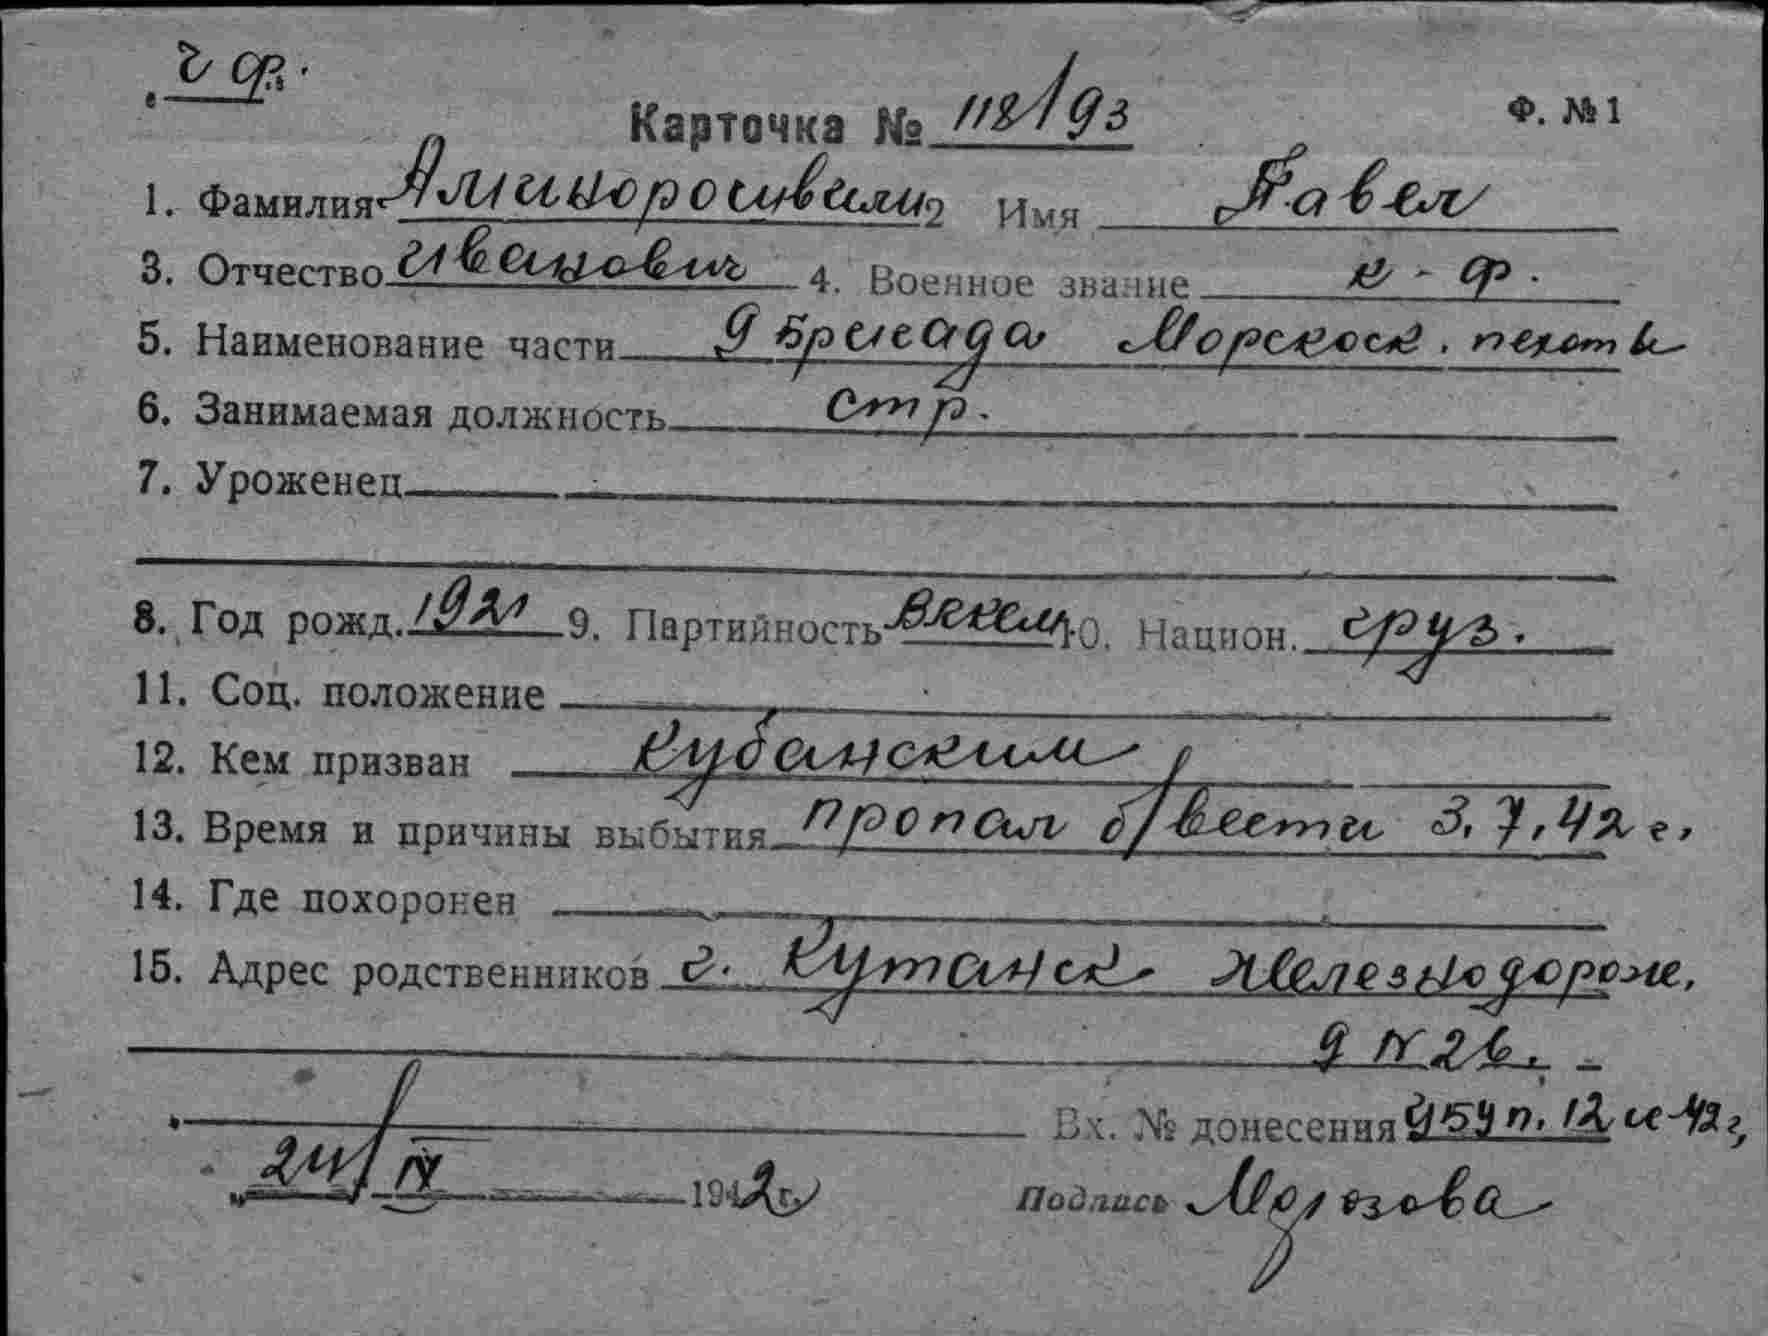 ч ф.
Карточка № 112/93 Ф. №1
1. Фамилия Алшиорошвили 2 Имя Павел
3. Отчество Иванович 4. Военное звание к-ф.
5. Наименование части 9 Бригада Морской пехоты
6. Занимаемая должность стр.
7. Уроженец
8. Год рожд. 1921 9. Партийность 10. Национ. груз.
11. Соц. положение
12. Кем призван Кубанским
13. Время и причины выбытия пропал б/вести 3.7.42 г.
14. Где похоронен
15. Адрес родственников г. Железнодорож.
д N 26.
Вх. № донесения 12 и-42г,
24/IX 1942г. Подпись Морозова